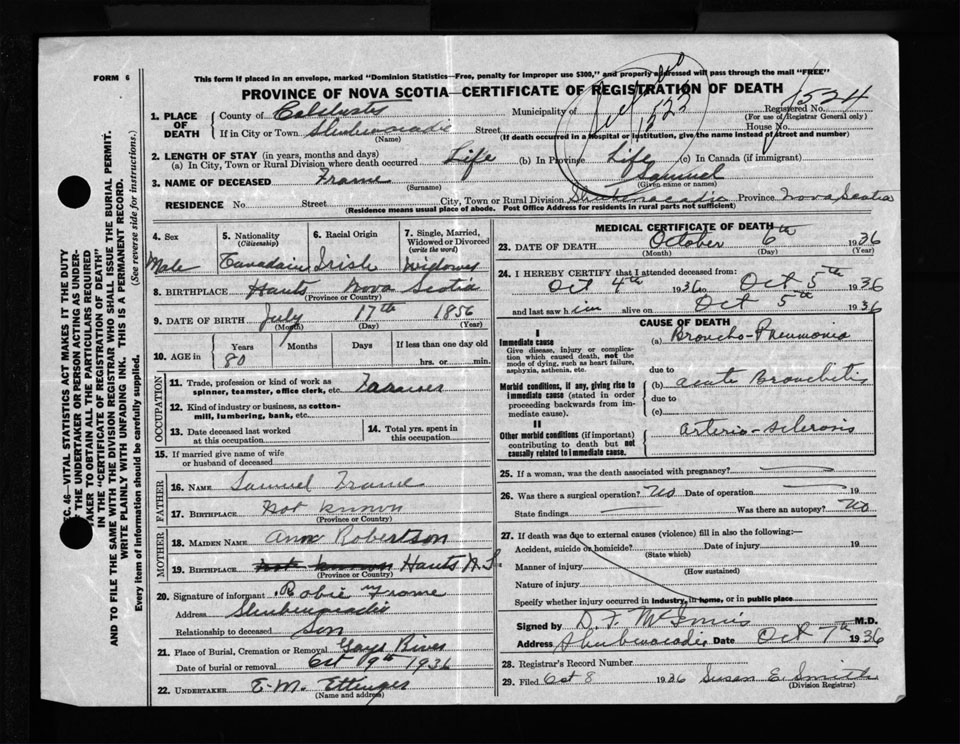 FORM 6
This form if placed in an envelope, marked "Dominion Statistics—Free, penalty for improper use $300," and properly addressed will pass through the mail "FREE"
PROVINCE OF NOVA SCOTIA—CERTIFICATE OF REGISTRATION OF DEATH
1. PLACE OF DEATH
County of Colchester Municipality of Registered No. 1524
(For use of Registrar General only)
If in City or Town Shubenacadie Street House No.
(Name) (If death occurred in a hospital or institution, give the name instead of street and number)
122
2. LENGTH OF STAY (in years, months and days)
(a) In City, Town or Rural Division where death occurred Life (b) In Province Life (c) In Canada (if immigrant)
3. NAME OF DECEASED Frame Samuel
(Surname) (Given name or names)
RESIDENCE No. Street City, Town or Rural Division Shubenacadie Province Nova Scotia
(Residence means usual place of abode. Post Office Address for residents in rural parts not sufficient)
4. Sex Male
5. Nationality (Citizenship) Canadain
6. Racial Origin Irish
7. Single, Married, Widowed or Divorced (write the word) Widower
8. BIRTHPLACE Hants Nova Scotia
(Province or Country)
9. DATE OF BIRTH July 17th 1856
(Month) (Day) (Year)
10. AGE in Years Months Days If less than one day old
80 hrs. or min.
OCCUPATION
11. Trade, profession or kind of work as spinner, teamster, office clerk, etc. Farmer
12. Kind of industry or business, as cotton-mill, lumbering, bank, etc.
13. Date deceased last worked at this occupation
14. Total yrs. spent in this occupation
15. If married give name of wife or husband of deceased
FATHER
16. NAME Samuel Frame
17. BIRTHPLACE Not known
(Province or Country)
MOTHER
18. MAIDEN NAME Ann Robertson
19. BIRTHPLACE not known Hants N.S.
(Province or Country)
20. Signature of informant Robie Frame
Address Shubenacadie
Relationship to deceased Son
21. Place of Burial, Cremation or Removal Gays River
Date of burial or removal Oct 9th 1936
22. UNDERTAKER E. M. Ettinger
(Name and address)
MEDICAL CERTIFICATE OF DEATH
23. DATE OF DEATH October 6th 1936
(Month) (Day) (Year)
24. I HEREBY CERTIFY that I attended deceased from:
Oct 4th 1936 to Oct 5th 1936
and last saw him alive on Oct 5th 1936
CAUSE OF DEATH
I
Immediate cause
Give disease, injury or complication which caused death, not the mode of dying, such as heart failure, asphyxia, asthenia, etc.
(a) Broncho-Pneumonia
due to
Morbid conditions, if any, giving rise to immediate cause (stated in order proceeding backwards from immediate cause).
(b) acute Bronchitis
due to
(c)
II
Other morbid conditions (if important) contributing to death but not causally related to immediate cause.
Arterio-sclerosis
25. If a woman, was the death associated with pregnancy?
26. Was there a surgical operation? No Date of operation 19
State findings Was there an autopsy? No
27. If death was due to external causes (violence) fill in also the following:—
Accident, suicide or homicide? Date of injury 19
(State which)
Manner of injury
(How sustained)
Nature of injury
Specify whether injury occurred in industry, in home, or in public place
Signed by D. F. McInnis M.D.
Address Shubenacadie Date Oct 7th 1936
28. Registrar's Record Number
29. Filed Oct 8 1936 Susan E. Smith
(Division Registrar)
SEC. 46—VITAL STATISTICS ACT MAKES IT THE DUTY
OF THE UNDERTAKER OR PERSON ACTING AS UNDERTAKER TO OBTAIN ALL THE PARTICULARS REQUIRED
IN THE "CERTIFICATE OF REGISTRATION OF DEATH"
AND TO FILE THE SAME WITH THE DIVISION REGISTRAR WHO SHALL ISSUE THE BURIAL PERMIT.
WRITE PLAINLY WITH UNFADING INK. THIS IS A PERMANENT RECORD.
Every item of information should be carefully supplied. (See reverse side for instructions.)